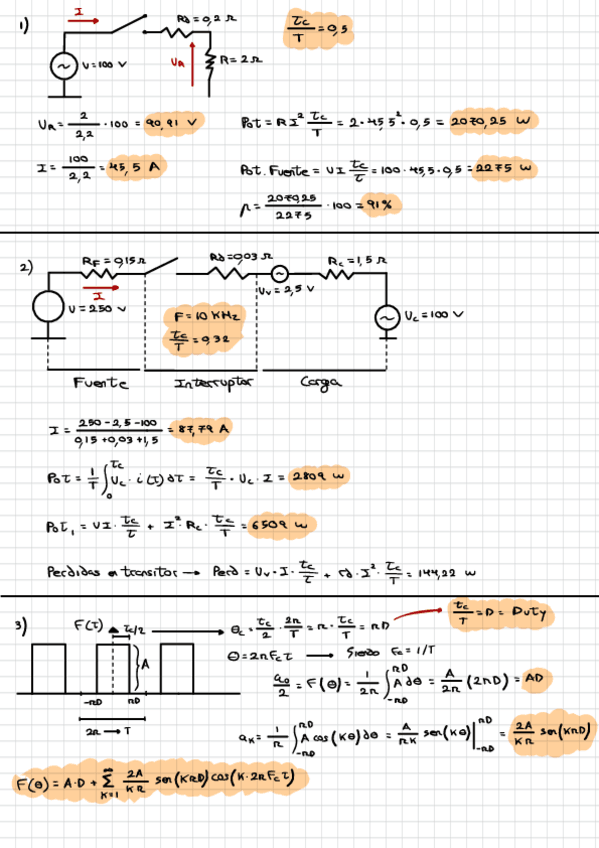 1)
I
Rd=0,2 Ω
τc/T = 0,5
U=100 V
UR
R=2Ω
UR = 2/2,2 · 100 = 90,91 V
Pot = RI² τc/T = 2·45,5²·0,5 = 2070,25 W
I = 100/2,2 = 45,5 A
Pot. Fuente = UI τc/τ = 100·45,5·0,5 = 2275 W
μ = 2070,25/2275 · 100 = 91%
2)
RF = 0,15Ω
Rd=0,03Ω
Rc=1,5Ω
I
U=250 V
Uv=2,5 V
F = 10 KHz
Uc=100 V
τc/T = 0,32
Fuente
Interruptor
Carga
I = 250-2,5-100/0,15+0,03+1,5 = 87,79 A
Pot = 1/T ∫₀^τc Uc · i(τ) dτ = τc/T · Uc · I = 2809 W
Pot₁ = UI · τc/τ + I² · Rc · τc/T = 6509 W
Perdidas en transitor → Perd = Uv · I · τc/τ + rd · I² · τc/T = 144,22 W
3)
F(τ)
τc/2
θc = τc/2 · 2π/T = π · τc/T = πD
τc/T = D = Duty
A
θ = 2πFcτ → Siendo Fc = 1/T
-πD
πD
2π → T
a₀/2 = F(θ) = 1/2π ∫_-πD^πD A dθ = A/2π (2πD) = AD
aK = 1/π ∫_-πD^πD A cos(Kθ)dθ = A/πK sen(Kθ)|_-πD^πD = 2A/Kπ sen(KπD)
F(θ) = A·D + Σ_K=1^∞ 2A/Kπ sen(KπD) cos(K·2πFcτ)